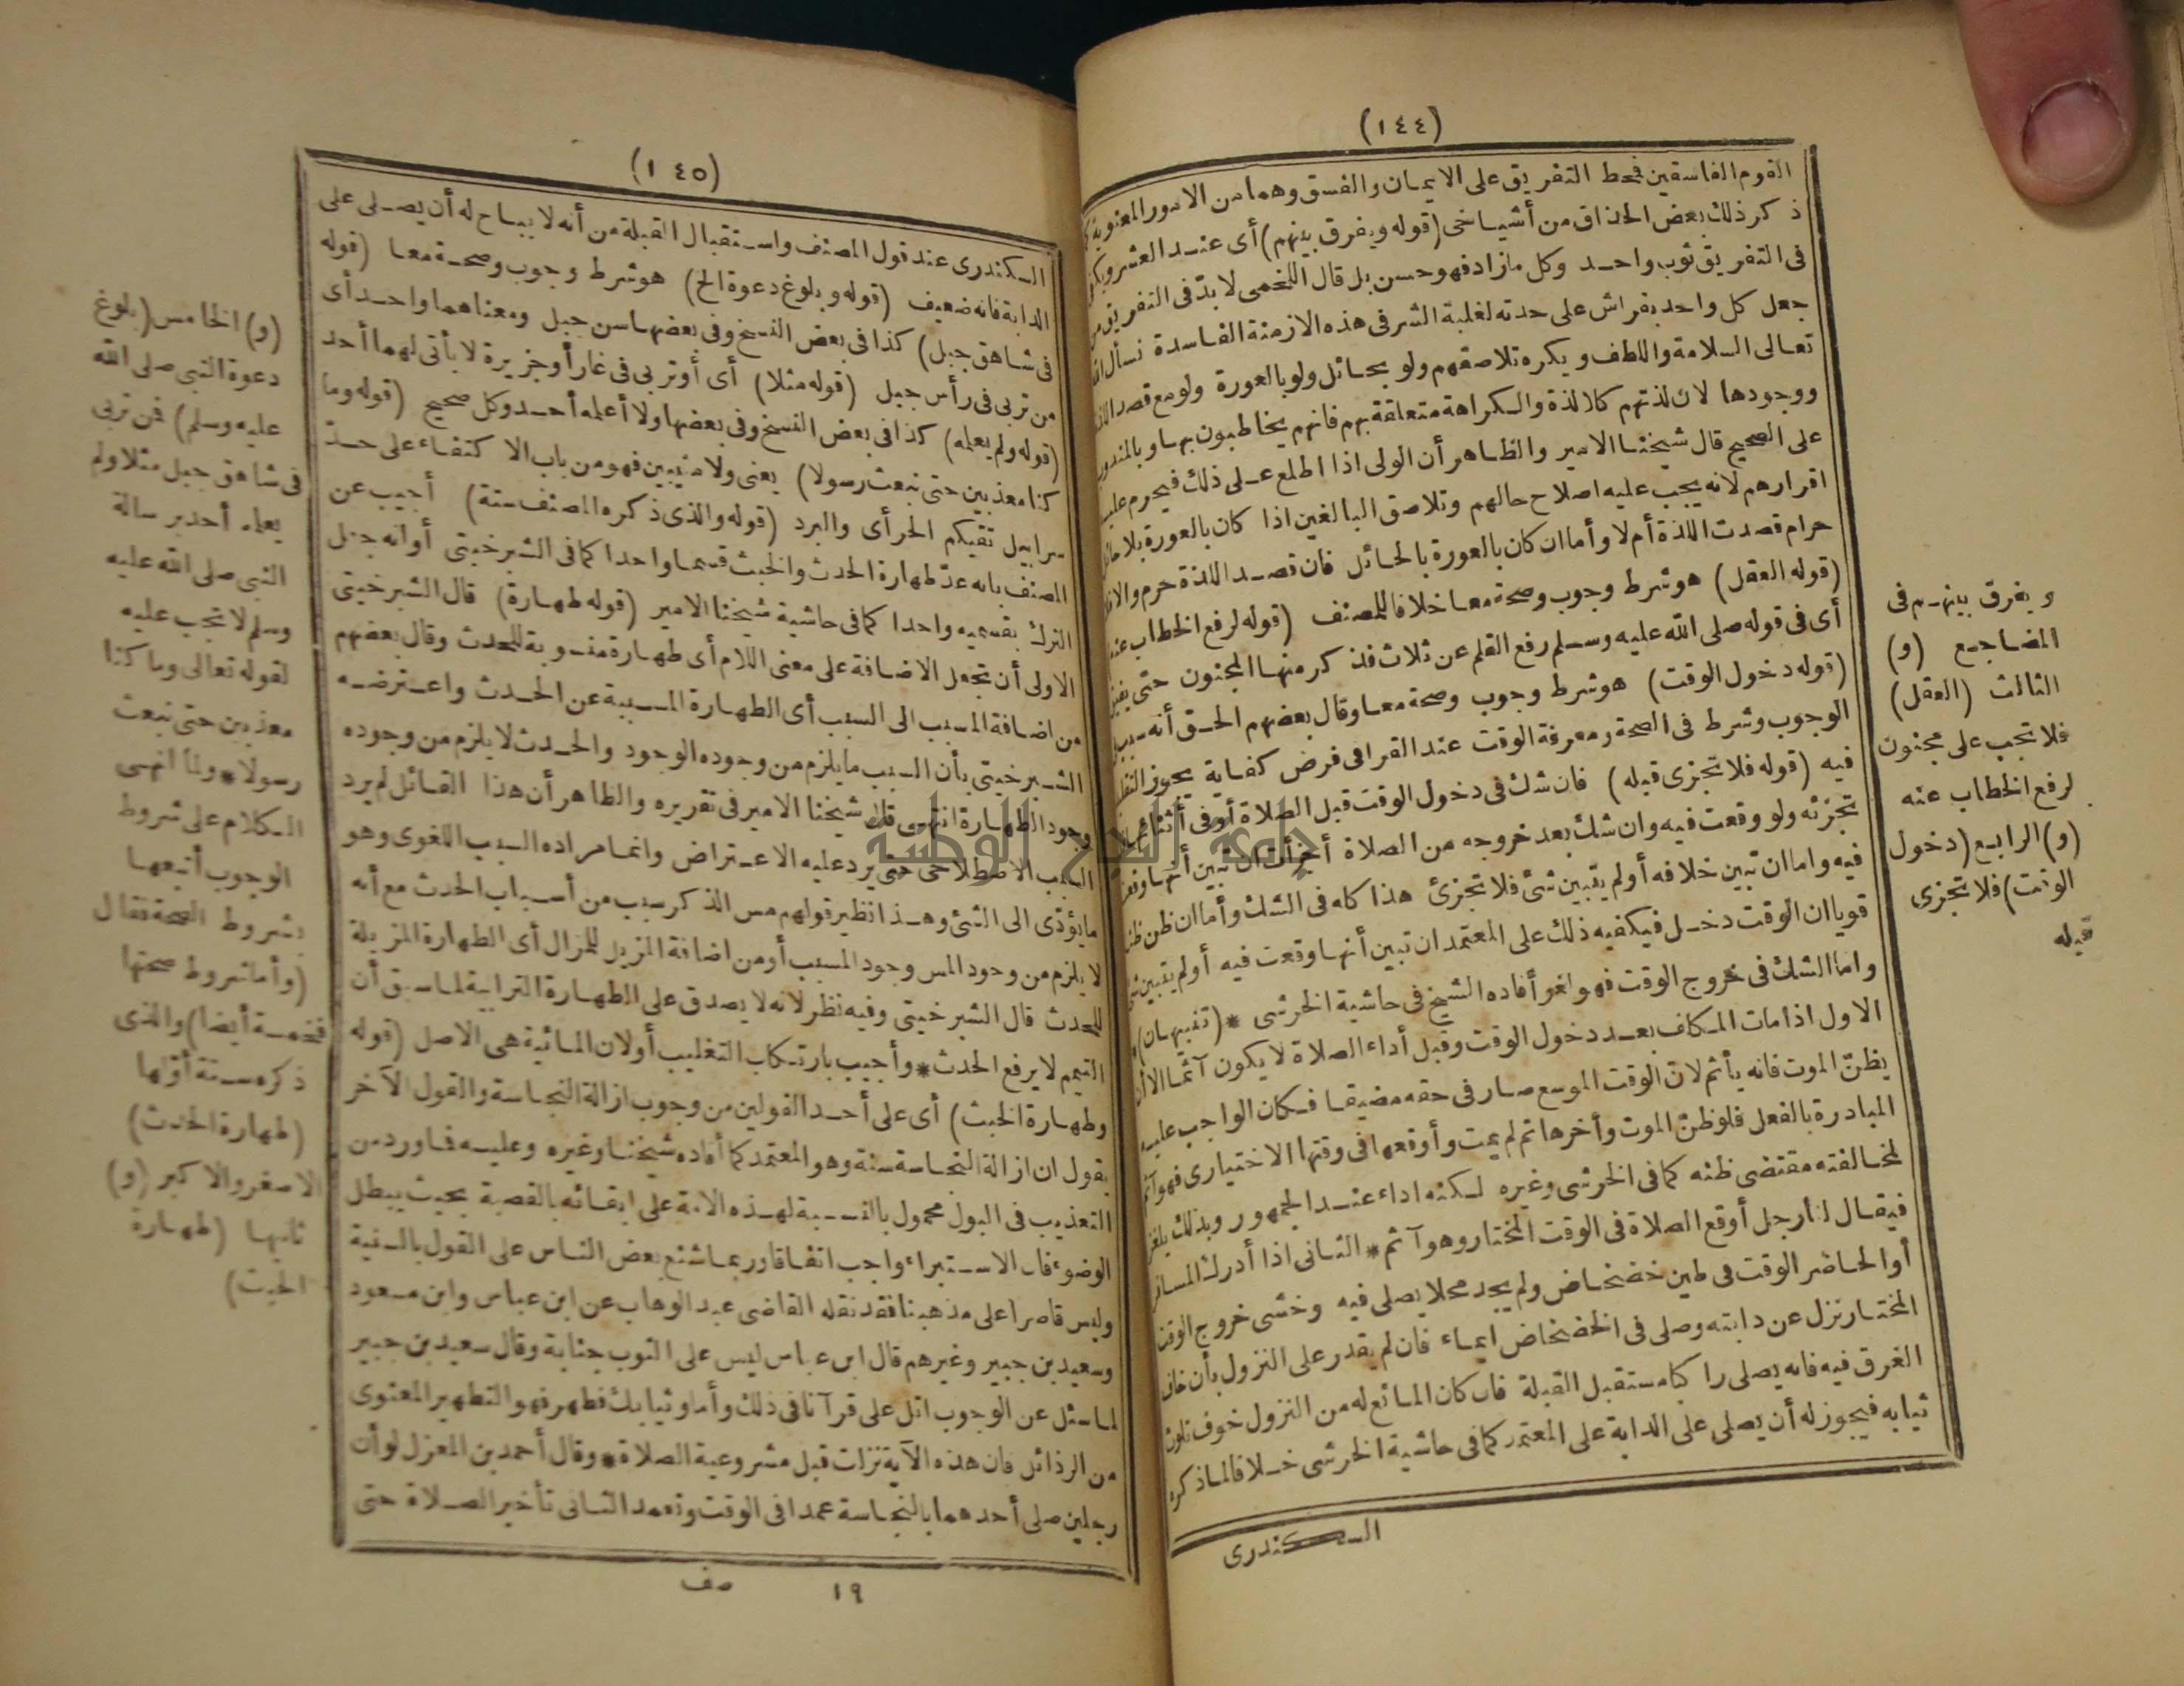 (١٤٤)
القوم الفاسقين فحط التفريق على الايمان والفسق وهما من الامور المعنوية
ذكر ذلك بعض الحذاق من أشياخى (قوله ويفرق بينهم) أى عند العشر ويكفى
فى التفريق ثوب واحد وكل مازاد فهو حسن بل قال اللخمى لا بدّ فى التفريق من
جعل كل واحد بفراش على حدته لغلبة الشر فى هذه الازمنة الفاسدة نسأل الله
تعالى السلامة واللطف ويكره تلاصقهم ولو بحائل ولو بالعورة ولو مع قصد اللذة
ووجودها لان لذتهم كلا لذة والكراهة متعلقة بهم فانهم يخاطبون بها وبالمندوب
على الصحيح قال شيخنا الامير والظاهر أن الولى اذا اطلع على ذلك فيحرم عليه
اقرارهم لانه يجب عليه اصلاح حالهم وتلاصق البالغين اذا كان بالعورة بلا حائل
حرام قصدت اللذة أم لا وأما ان كان بالعورة بالحائل فان قصد اللذة حرم والا
(قوله العقل) هو شرط وجوب وصحة معا خلافا للمصنف (قوله لرفع الخطاب عنه)
أى فى قوله صلى الله عليه وسلم رفع القلم عن ثلاث فذكر منها المجنون حتى يفيق
(قوله دخول الوقت) هو شرط وجوب وصحة معا وقال بعضهم الحق أنه سبب
الوجوب وشرط فى الصحة ومعرفة الوقت عند القرافى فرض كفاية يجوز التقليد
فيه (قوله فلا تجزى قبله) فان شك فى دخول الوقت قبل الصلاة أو فى أثنائها لم
تجزئه ولو وقعت فيه وان شك بعد خروجه من الصلاة أجزأت ان تبين أنها وقعت
فيه واما ان تبين خلافه أو لم يتبين شئ فلا تجزئ هذا كله فى الشك وأما ان ظن ظنا
قويا ان الوقت دخل فيكفيه ذلك على المعتمد ان تبين أنها وقعت فيه أو لم يتبين شئ
واما الشك فى خروج الوقت فهو لغو أفاده الشيخ فى حاشية الخرشى * (تنبيهان)
الاول اذا مات المكلف بعد دخول الوقت وقبل أداء الصلاة لا يكون آثما الا أن
يظنّ الموت فانه يأثم لانّ الوقت الموسع صار فى حقه مضيقا فكان الواجب عليه
المبادرة بالفعل فلو ظنّ الموت وأخرها ثم لم يمت وأوقعها فى وقتها الاختيارى فهو آثم
لمخالفته مقتضى ظنه كما فى الخرشى وغيره لكنه اداء عند الجمهور وبذلك يلغز
فيقال لنا رجل أوقع الصلاة فى الوقت المختار وهو آثم * الثانى اذا أدرك المسافر
أو الحاضر الوقت فى طين خضخاض ولم يجد محلا يصلى فيه وخشى خروج الوقت
المختار نزل عن دابته وصلى فى الخضخاض ايماء فان لم يقدر على النزول بأن خاف
الغرق فيه فانه يصلى راكبا مستقبل القبلة فان كان المانع له من النزول خوف تلوث
ثيابه فيجوز له أن يصلى على الدابة على المعتمد كما فى حاشية الخرشى خلافا لما ذكره
السكندرى
ويفرق بينهم فى
المضاجع (و)
الثالث (العقل)
فلا تجب على مجنون
لرفع الخطاب عنه
(و) الرابع (دخول
الوقت) فلا تجزى
قبله
(١٤٥)
السكندرى عند قول المصنف واستقبال القبلة من أنه لا يباح له أن يصلى على
الدابة فانه ضعيف (قوله وبلوغ دعوة الخ) هو شرط وجوب وصحة معا (قوله
فى شاهق جبل) كذا فى بعض النسخ وفى بعضها سن جبل ومعناهما واحد أى
من تربى فى رأس جبل (قوله مثلا) أى أو تربى فى غار أو جزيرة لا يأتى لهما أحد
(قوله ولم يعلمه) كذا فى بعض النسخ وفى بعضها ولا أعلمه أحد وكل صحيح (قوله وما
كنا معذبين حتى نبعث رسولا) يعنى ولا مثيبين فهو من باب الاكتفاء على حدّ
سرابيل تقيكم الحر أى والبرد (قوله والذى ذكره المصنف ستة) أجيب عن
المصنف بانه عدّ طهارة الحدث والخبث قسما واحدا كما فى الشبرخيتى أو انه جعل
الترك بقسميه واحدا كما فى حاشية شيخنا الامير (قوله طهارة) قال الشبرخيتى
الاولى أن تجعل الاضافة على معنى اللام أى طهارة منسوبة للحدث وقال بعضهم
من اضافة المسبب الى السبب أى الطهارة المسببة عن الحدث واعترضه
الشبرخيتى بأن السبب ما يلزم من وجوده الوجود والحدث لا يلزم من وجوده
وجود الطهارة انتهى قال شيخنا الامير فى تقريره والظاهر أن هذا القائل لم يرد
السبب الاصطلاحى حتى يرد عليه الاعتراض وانما مراده السبب اللغوى وهو
ما يؤدّى الى الشئ وهذا نظير قولهم مس الذكر سبب من أسباب الحدث مع أنه
لا يلزم من وجود المس وجود المسبب أو من اضافة المزيل للمزال أى الطهارة المزيلة
للحدث قال الشبرخيتى وفيه نظر لانه لا يصدق على الطهارة الترابية لما سبق أن
التيمم لا يرفع الحدث * وأجيب بارتكاب التغليب أو لان المائية هى الاصل (قوله
وطهارة الخبث) أى على أحد القولين من وجوب ازالة النجاسة والقول الآخر
يقول ان ازالة النجاسة سنة وهو المعتمد كما أفاده شيخنا وغيره وعليه فما ورد من
التعذيب فى البول محمول بالنسبة لهذه الامة على ابقائه بالقصبة بحيث يبطل
الوضوء فان الاستبراء واجب اتفاقا وربما شنع بعض الناس على القول بالسنية
وليس قاصرا على مذهبنا فقد نقله القاضى عبد الوهاب عن ابن عباس وابن مسعود
وسعيد بن جبير وغيرهم قال ابن عباس ليس على الثوب جنابة وقال سعيد بن جبير
لما سئل عن الوجوب اتل على قرآنا فى ذلك وأما وثيابك فطهر فهو التطهير المعنوى
من الرذائل فان هذه الآية نزلت قبل مشروعية الصلاة * وقال أحمد بن المعزل لو أن
رجلين صلى أحدهما بالنجاسة عمدا فى الوقت وتعمد الثانى تأخير الصلاة حتى
١٩ صف
(و) الخامس (بلوغ
دعوة النبى صلى الله
عليه وسلم) فمن تربى
فى شاهق جبل مثلا ولم
يعلمه أحد برسالة
النبى صلى الله عليه
وسلم لا تجب عليه
لقوله تعالى وما كنا
معذبين حتى نبعث
رسولا * ولما انهى
الكلام على شروط
الوجوب أتبعها
بشروط الصحة فقال
(وأما شروط صحتها
فخمسة أيضا) والذى
ذكره ستة أوّلها
(طهارة الحدث)
الاصغر والاكبر (و)
ثانيها (طهارة
الخبث)
جامعة النجاح الوطنية